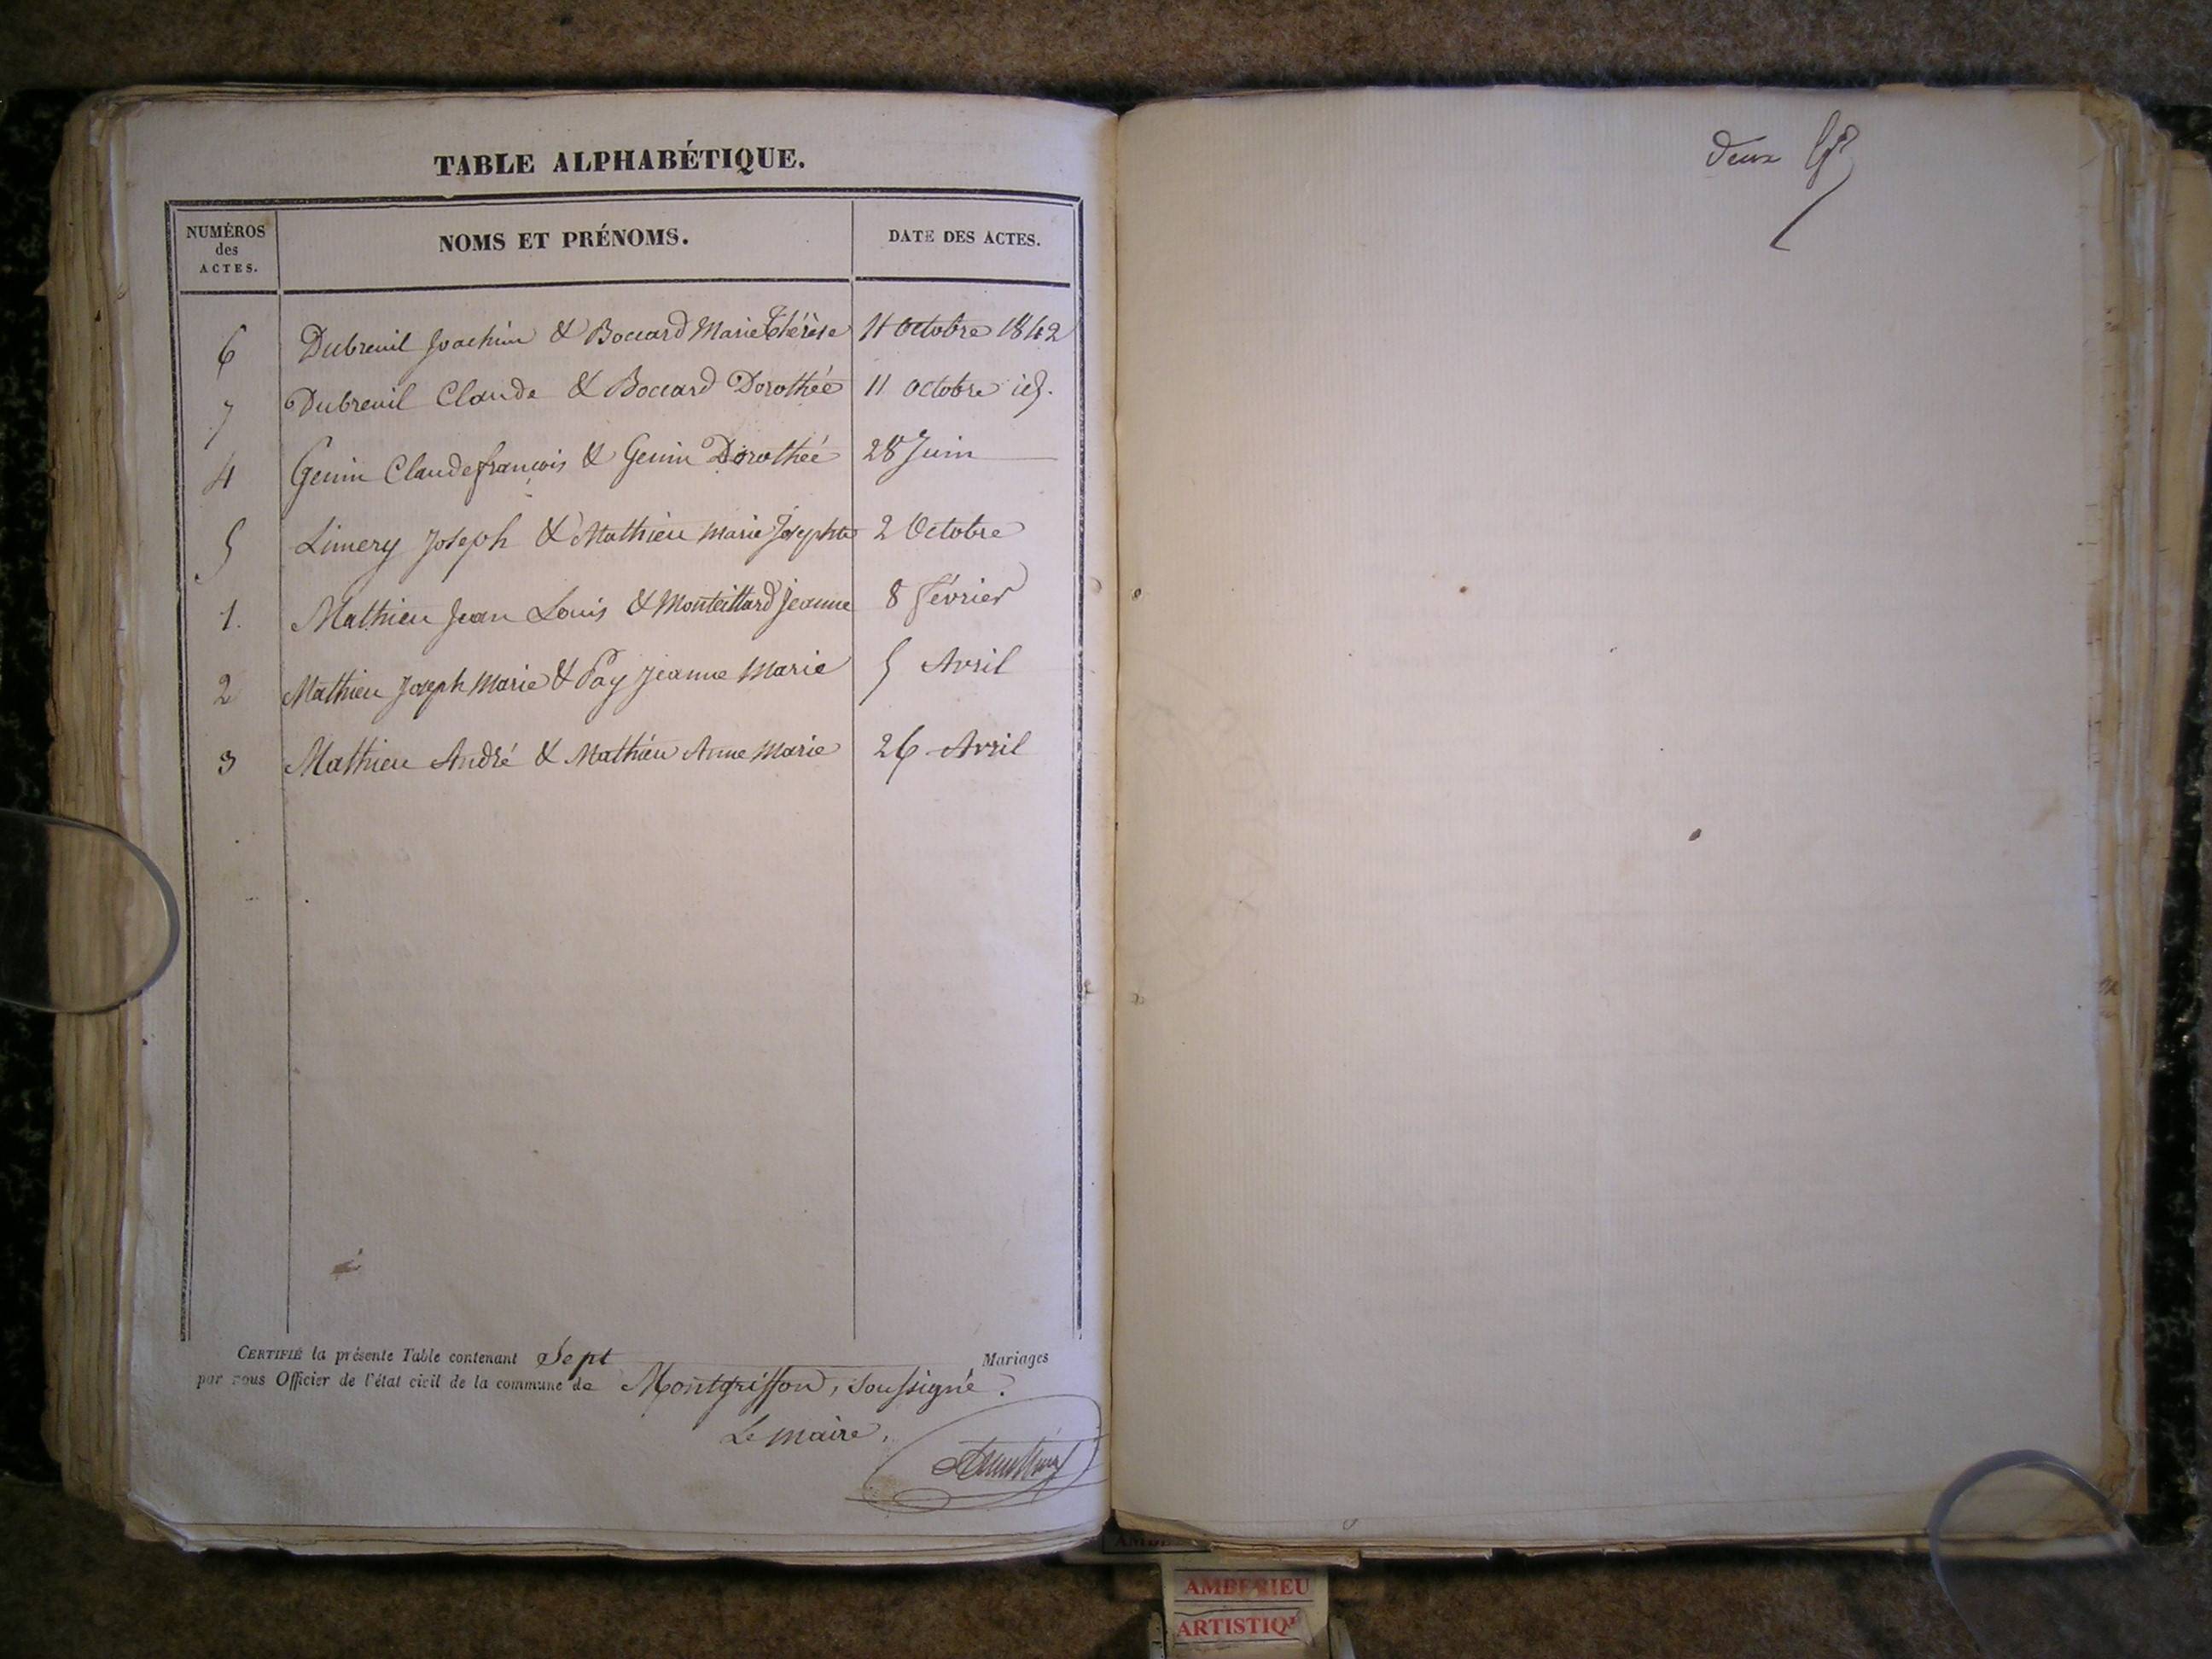 TABLE ALPHABÉTIQUE.
NUMÉROS des ACTES. NOMS ET PRÉNOMS. DATE DES ACTES.
6 Dubreuil Joachim & Boccard Marie Thérèse 11 Octobre 1842
7 Dubreuil Claude & Boccard Dorothée 11 octobre id.
4 Genin Claude françois & Genin Dorothée 28 Juin
5 Limery Joseph & Mathieu Marie Josephte 2 Octobre
1. Mathieu Jean Louis & Monteillard Jeanne 8 février
2 Mathieu Joseph Marie & Pay Jeanne Marie 5 Avril
3 Mathieu André & Mathieu Anne Marie 26 Avril
CERTIFIÉ la présente Table contenant Sept Mariages
par nous Officier de l'état civil de la commune de Montgriffon, soussigné.
Le maire,
deux
AMBERIEU
ARTISTIQ